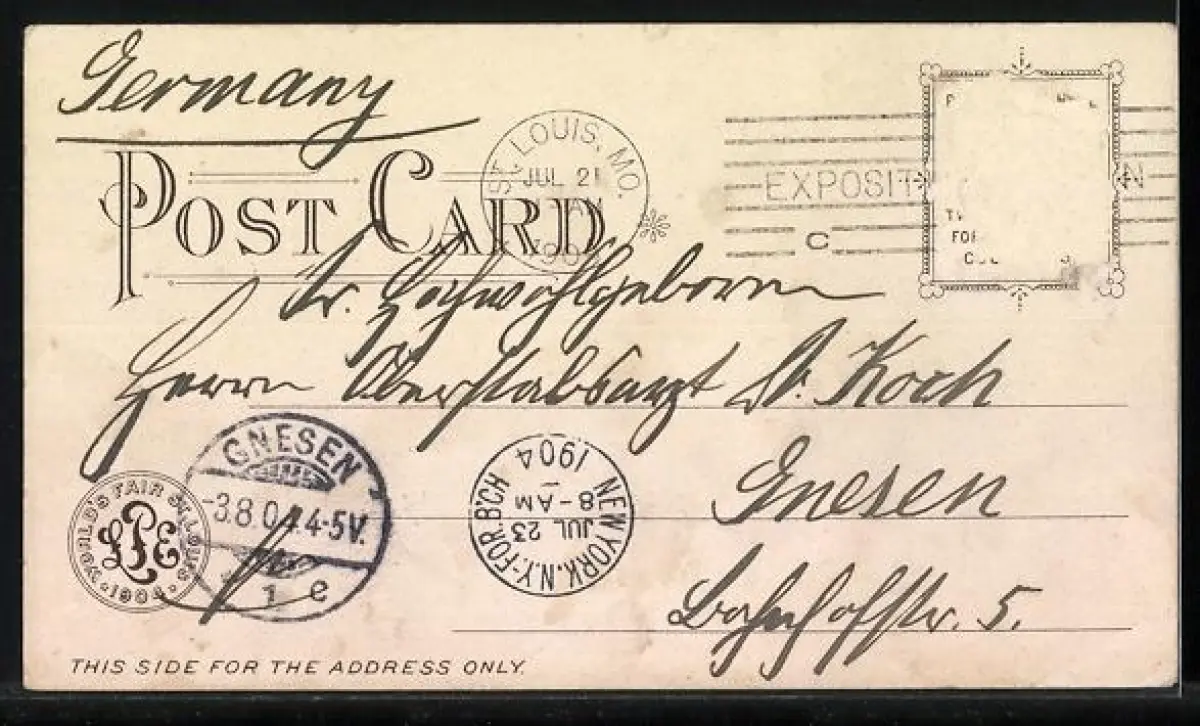 Germany
POST CARD
ST. LOUIS, MO.
JUL 21
EXPOSIT N
C
FOR
Sr. Hochwohlgeboren
Herrn Oberstabsarzt Dr. Koch
Gnesen
Bahnhofstr. 5.
GNESEN
-3.8.04.4-5V.
1 e
NEW YORK. N.Y.-FOR. B'CH
JUL 23
8-AM
1904
WORLD'S FAIR ST. LOUIS
LPE
1904
THIS SIDE FOR THE ADDRESS ONLY.